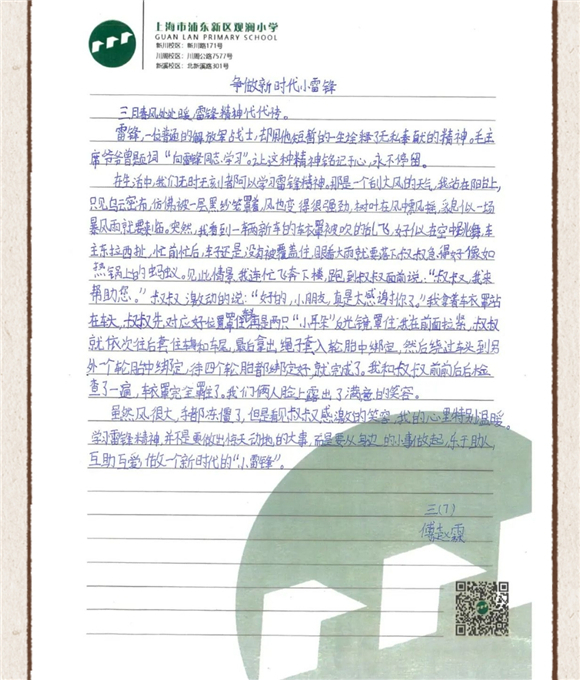 上海市浦东新区观澜小学
GUAN LAN PRIMARY SCHOOL
新川校区：新川路171号
川周校区：川周公路7577号
新溪校区：北新溪路301号
争做新时代小雷锋
三月春风处处暖，雷锋精神代代传。
雷锋，一位普通的解放军战士，却用他短暂的一生诠释了无私奉献的精神。毛主
席爷爷曾题词“向雷锋同志学习”。让这种精神铭记于心，永不停留。
在生活中，我们无时无刻都可以学习雷锋精神。那是一个刮大风的天气，我站在阳台上，
只见乌云密布，仿佛被一层黑纱笼罩着，风也变得很强劲，树叶在风中飘摇，貌似一场
暴风雨就要来临。突然，我看到一辆新车的车衣罩被吹的乱飞，好似在空中跳舞，车
主东拉西扯，忙前忙后，车子还是没有被覆盖住，眼看大雨就要落下，叔叔急得好像如
热锅上的蚂蚁。见此情景，我连忙飞奔下楼，跑到叔叔面前说：“叔叔，我来
帮助您。”叔叔激动的说：“好的，小朋友，真是太感谢你了。”我拿着车衣罩站
在车头，叔叔先对应好位置罩住车是两只“小耳朵”反光镜罩住，我在前面拉紧，叔叔
就依次往后套住车身和车尾，最后拿出绳子套入轮胎中绑定，然后绕过车头到另
外一个轮胎中绑定，待四个轮胎都绑定好，就完成了。我和叔叔前前后后检
查了一遍，车衣罩完全罩住了。我们俩人脸上露出了满意的笑容。
虽然风很大，手都冻僵了，但是看见叔叔感激的笑容，我的心里特别温暖。
学习雷锋精神，并不是要做出惊天动地的大事，而是要从身边的小事做起，乐于助人，
互助互爱，做一个新时代的“小雷锋”。
三（7）
傅赵霖